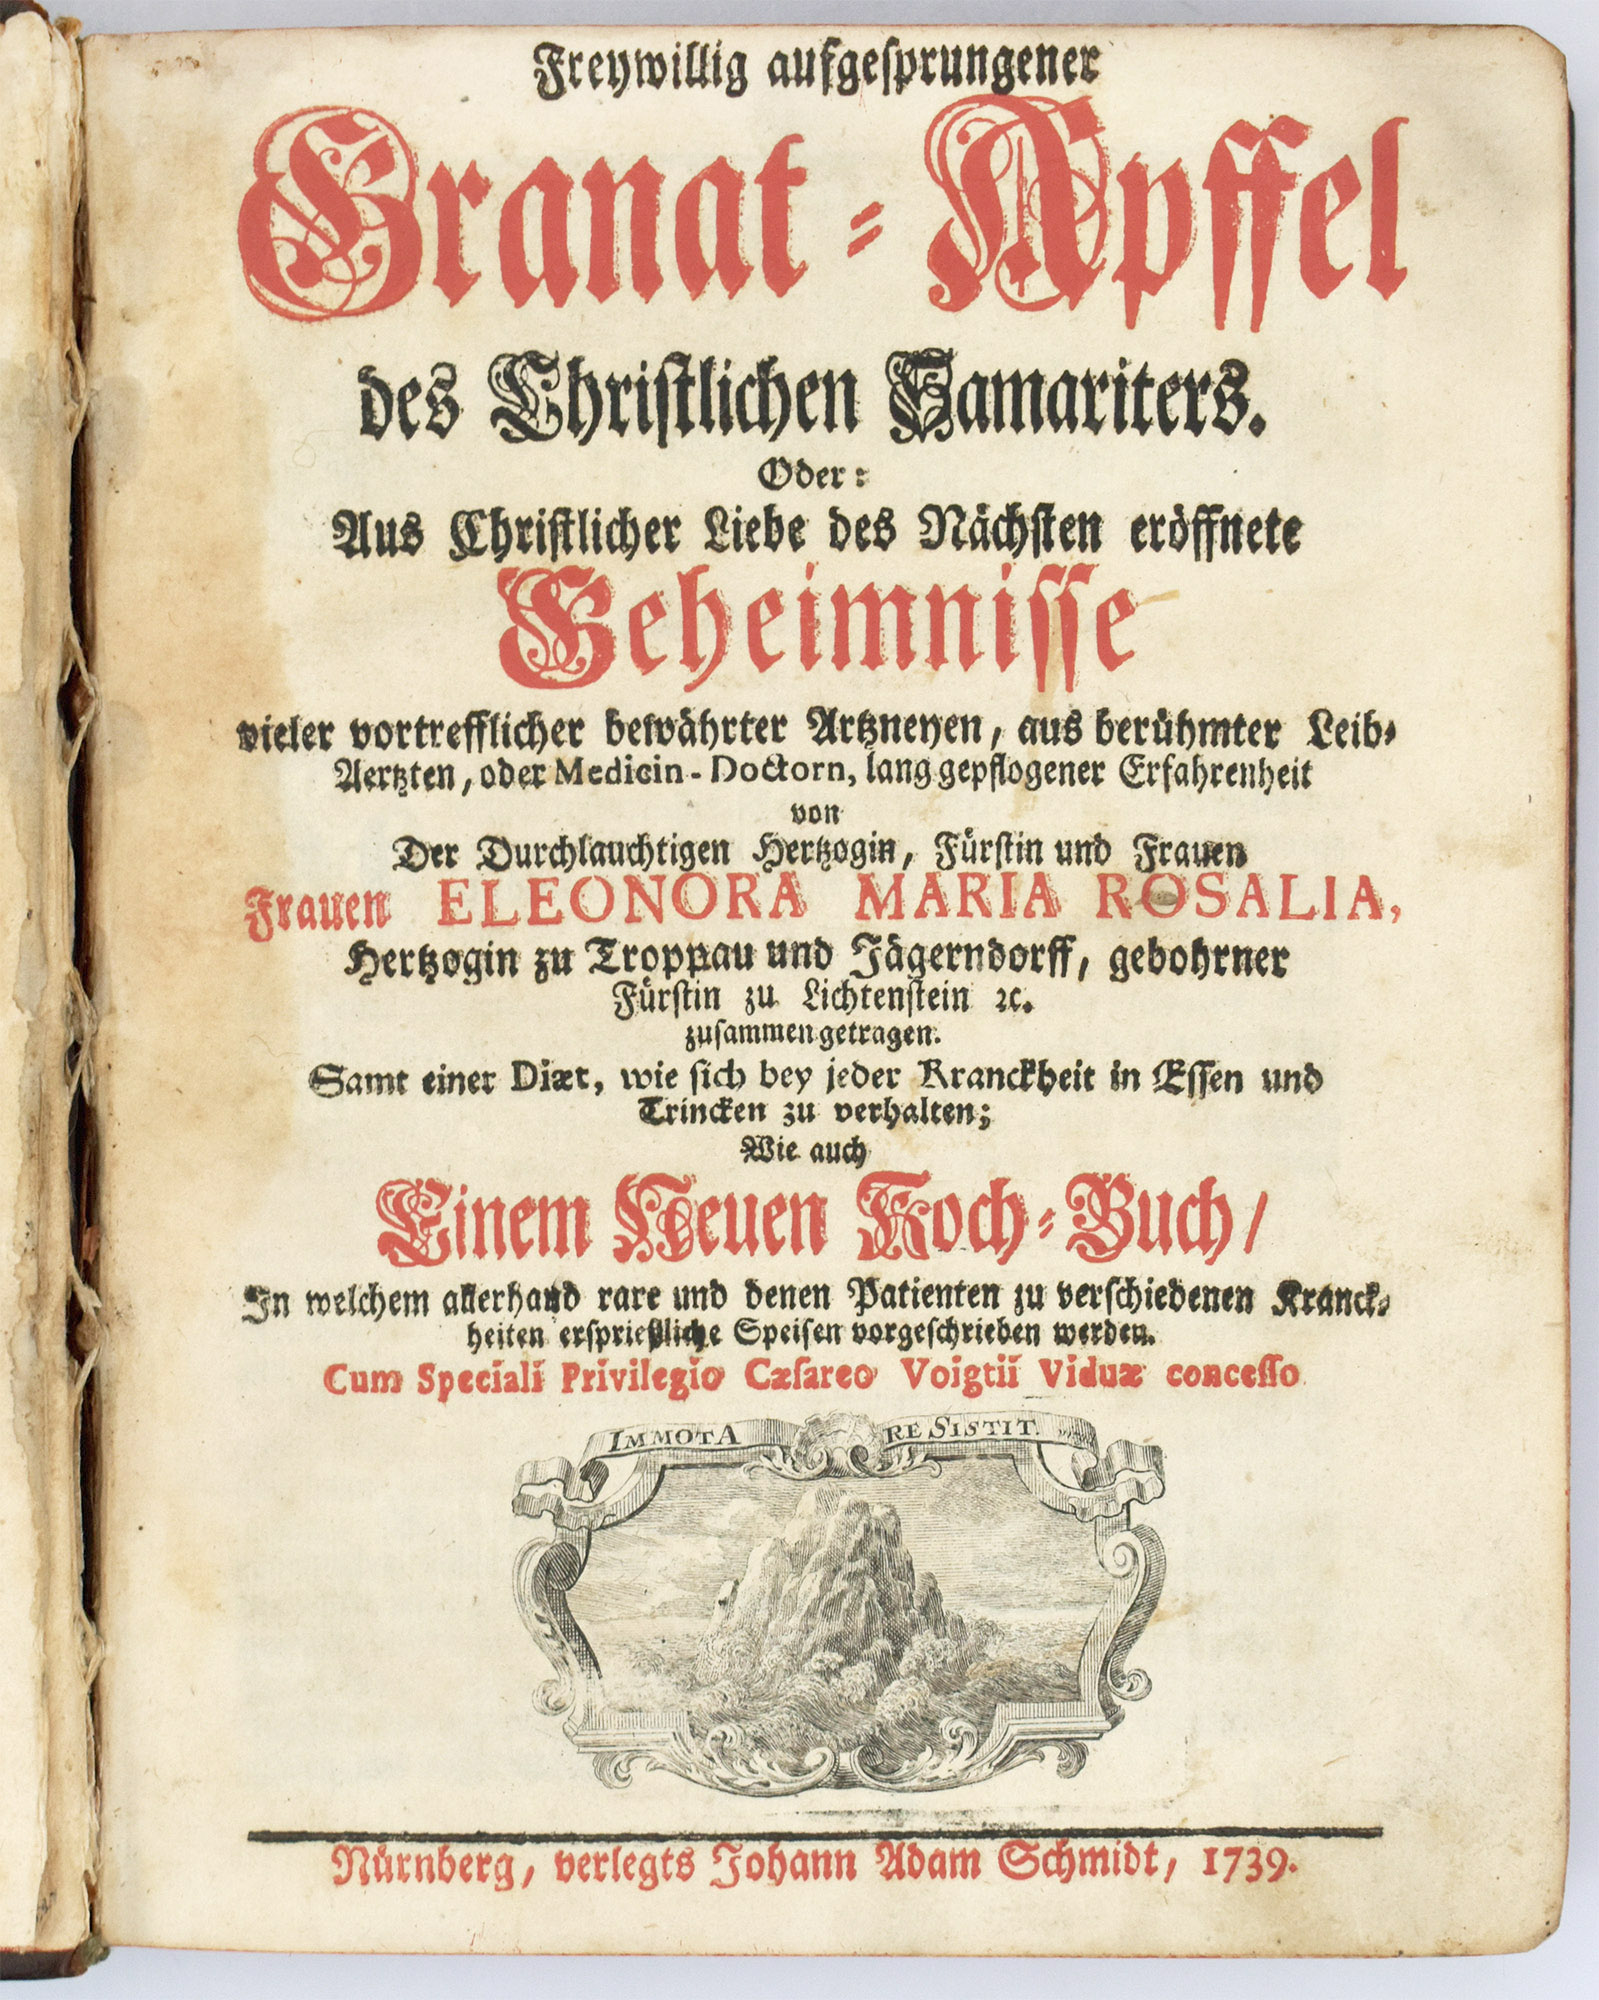 Freywillig aufgesprungener
Granat-Apffel
des Christlichen Samariters.
Oder:
Aus Christlicher Liebe des Nächsten eröffnete
Geheimnisse
vieler vortrefflicher bewährter Artzneyen, aus berühmter Leib-
Aertzten, oder Medicin-Doctorn, lang gepflogener Erfahrenheit
von
Der Durchlauchtigen Hertzogin, Fürstin und Frauen
Frauen ELEONORA MARIA ROSALIA,
Hertzogin zu Troppau und Jägerndorff, gebohrner
Fürstin zu Lichtenstein ꝛc.
zusammen getragen.
Samt einer Diæt, wie sich bey jeder Kranckheit in Essen und
Trincken zu verhalten;
Wie auch
Einem Neuen Koch-Buch/
In welchem allerhand rare und denen Patienten zu verschiedenen Kranck-
heiten ersprießliche Speisen vorgeschrieben werden.
Cum Speciali Privilegio Cæsareo Voigtii Viduæ concesso
IMMOTA RESISTIT.
Nürnberg, verlegts Johann Adam Schmidt, 1739.